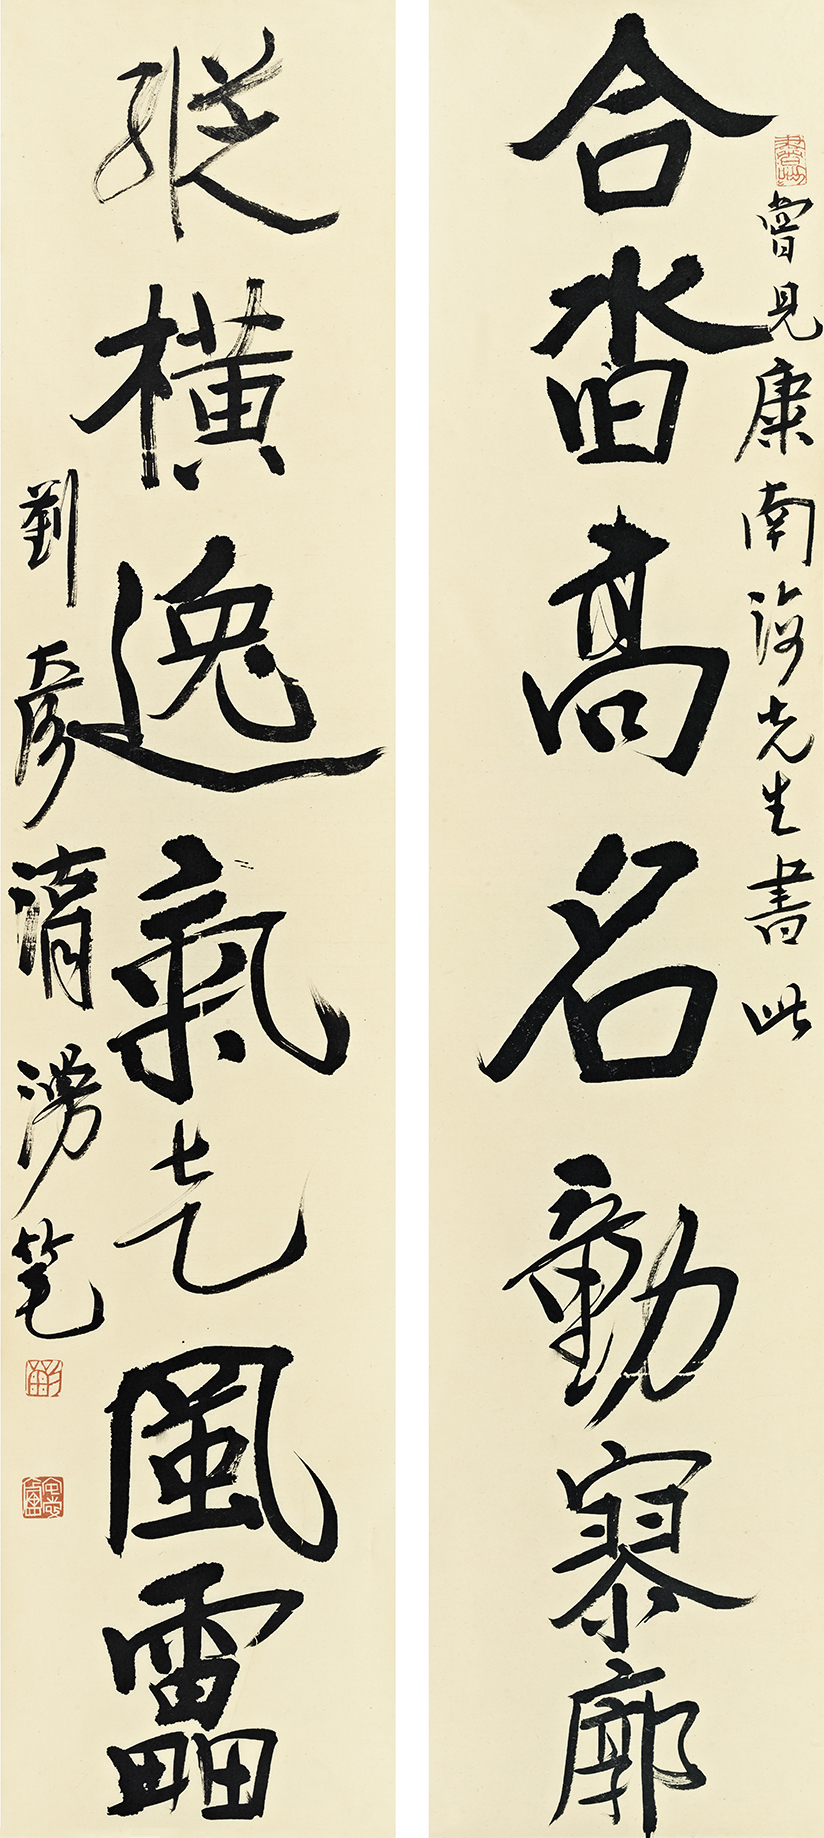 嘗見康南海先生書此
合沓高名動寥廓
縱橫逸氣走風雷
劉彥湖笔